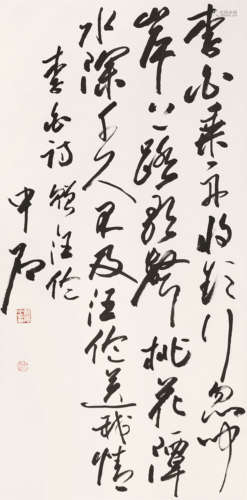 李白乘舟将欲行忽闻
岸上踏歌声桃花潭
水深千尺不及汪伦送我情
李白诗赠汪伦
中石